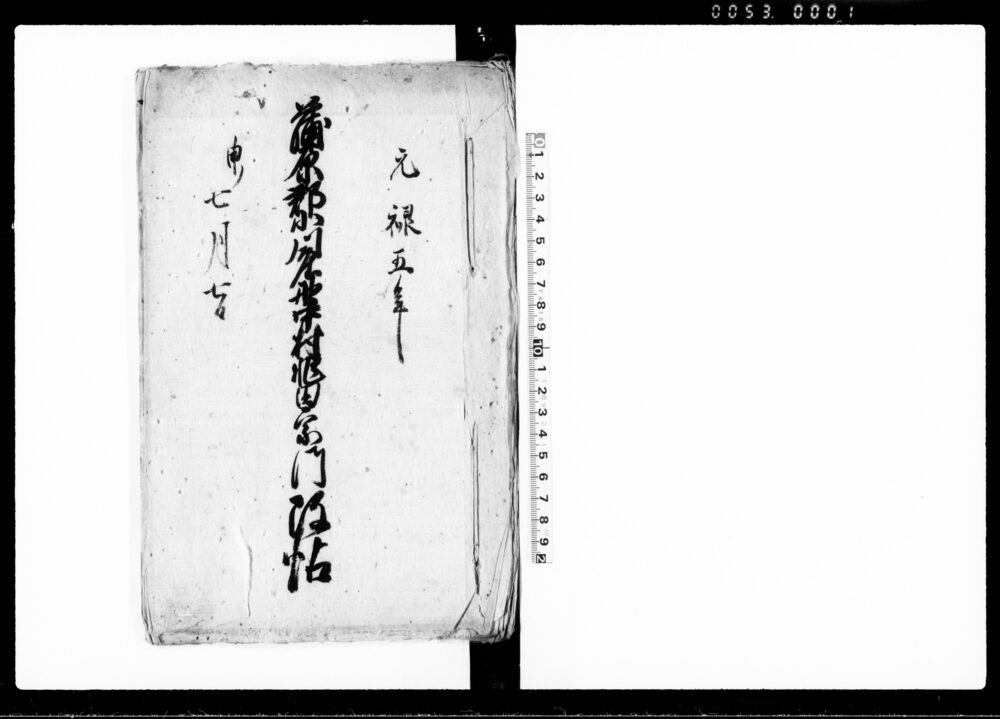 0053. 0001
元禄五年
蒲原郡関屋村宗門改帖
申ノ七月七日
0 1 2 3 4 5 6 7 8 9 10 1 2 3 4 5 6 7 8 9 2